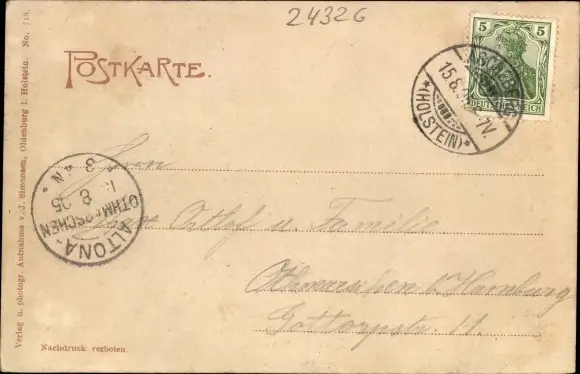 24326
POSTKARTE.
5
DEUTSCHES REICH
15.8. 6-7V.
*(HOLSTEIN)*
3
N.
8 05
ALTONA-
OTHMARSCHEN
Herrn
u. Familie
Othmarschen b. Hamburg
11.
Verlag u. photogr. Aufnahme v. J. Simonsen, Oldenburg i. Holstein. No. 719.
Nachdruck verboten.